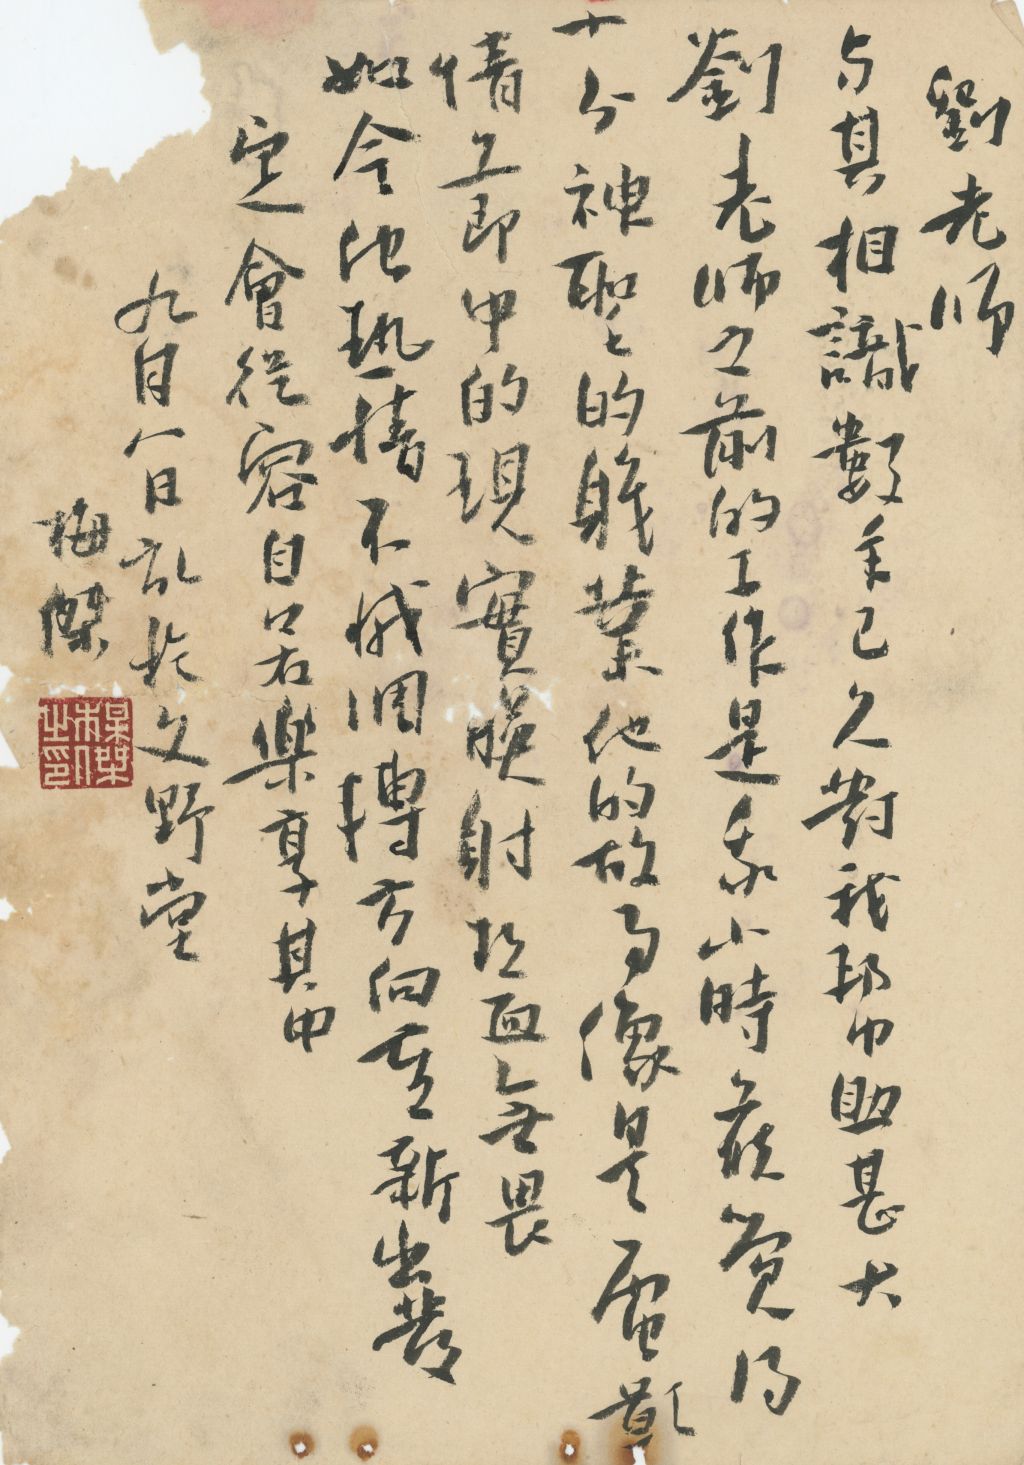 劉老师
与其相識數年已久對我邦中助甚大
劉老师之前的工作是我小時候覚得
十分神聖的職業他的故事像是電影
情工即中的現實映射热血無畏
如今他热情不减调轉方向重新出發
定會從容自若樂享其中
九月八日於文野堂
梅傑